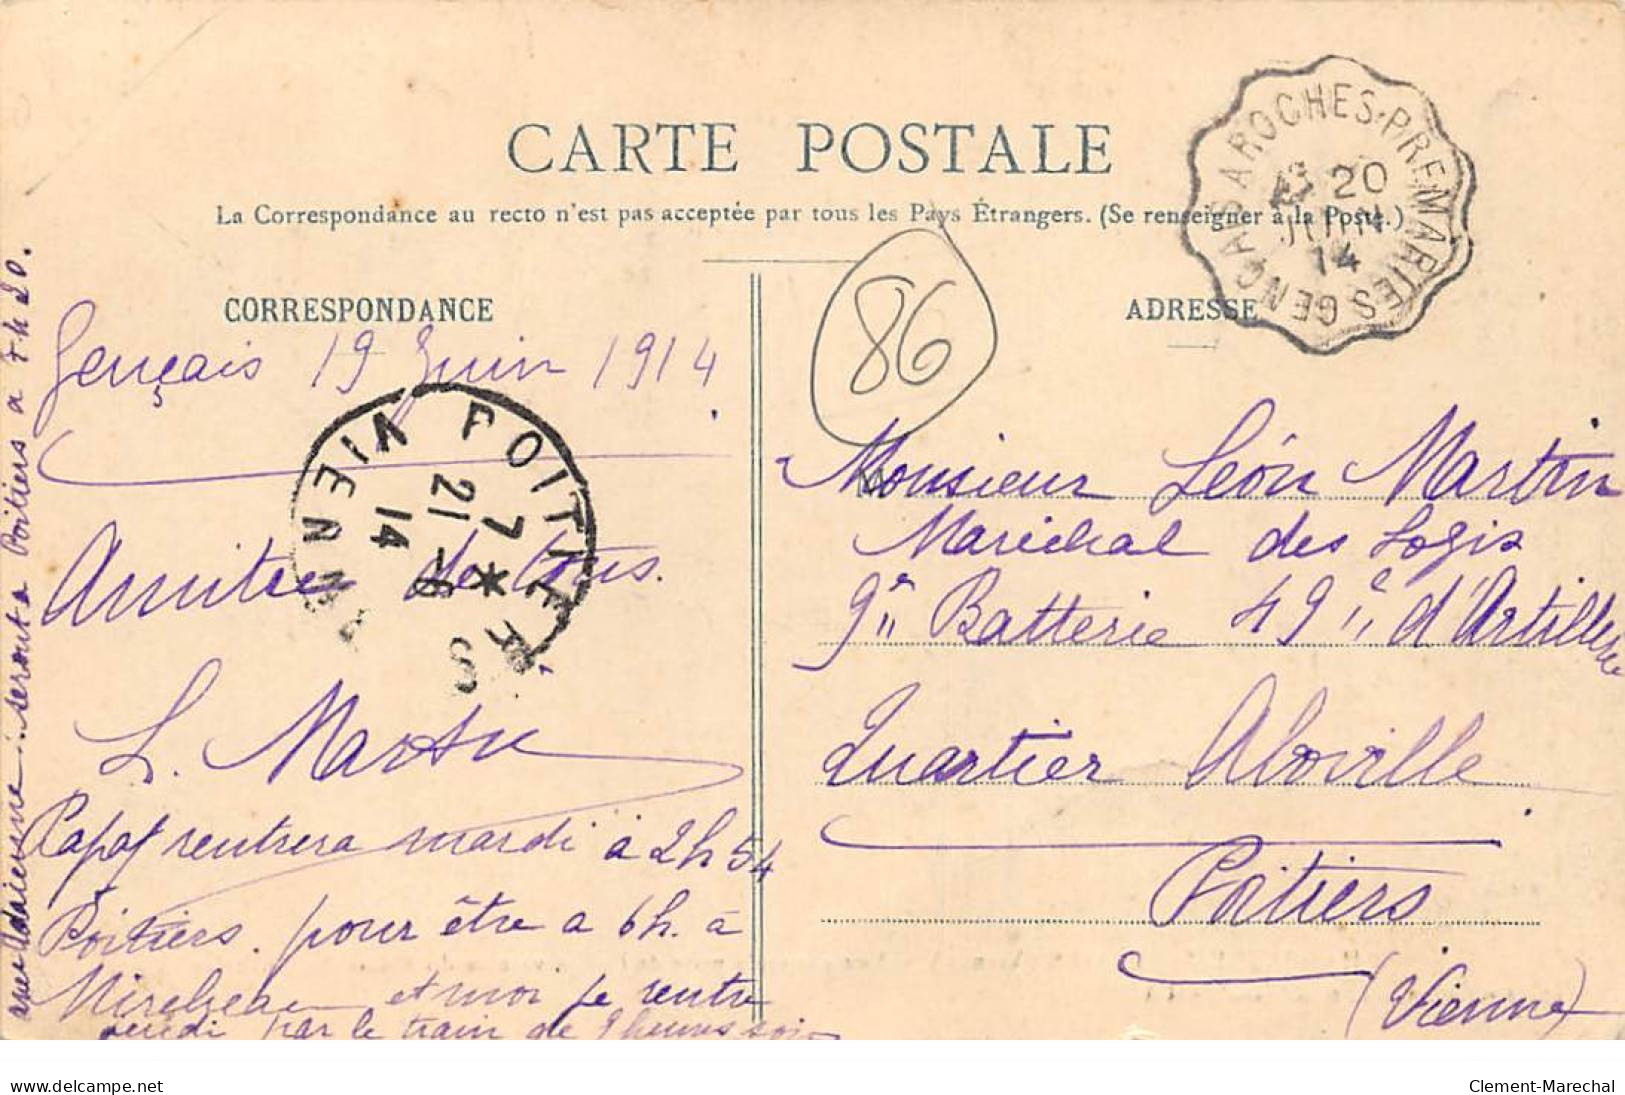 CARTE POSTALE
La Correspondance au recto n'est pas acceptée par tous les Pays Étrangers. (Se renseigner à la Poste.)
CORRESPONDANCE
ADRESSE
GENÇAIS A ROCHES-PREMARIES
20
JUIN
14
86
Gençais 19 Juin 1914
POITIERS
VIENNE
7 *
21 -6
14
Amitiés de tous.
L. Martin
rentrera mardi à 2h54
Poitiers. pour être a 6h. à
Mirebeau et moi je rentre
par le train de 9 heures soir
seront a Poitiers a 7h20.
Monsieur Léon Martin
Maréchal des Logis
9e Batterie 49e d'Artillerie
Quartier Aboville
Poitiers
(Vienne)
www.delcampe.net
Clement-Marechal